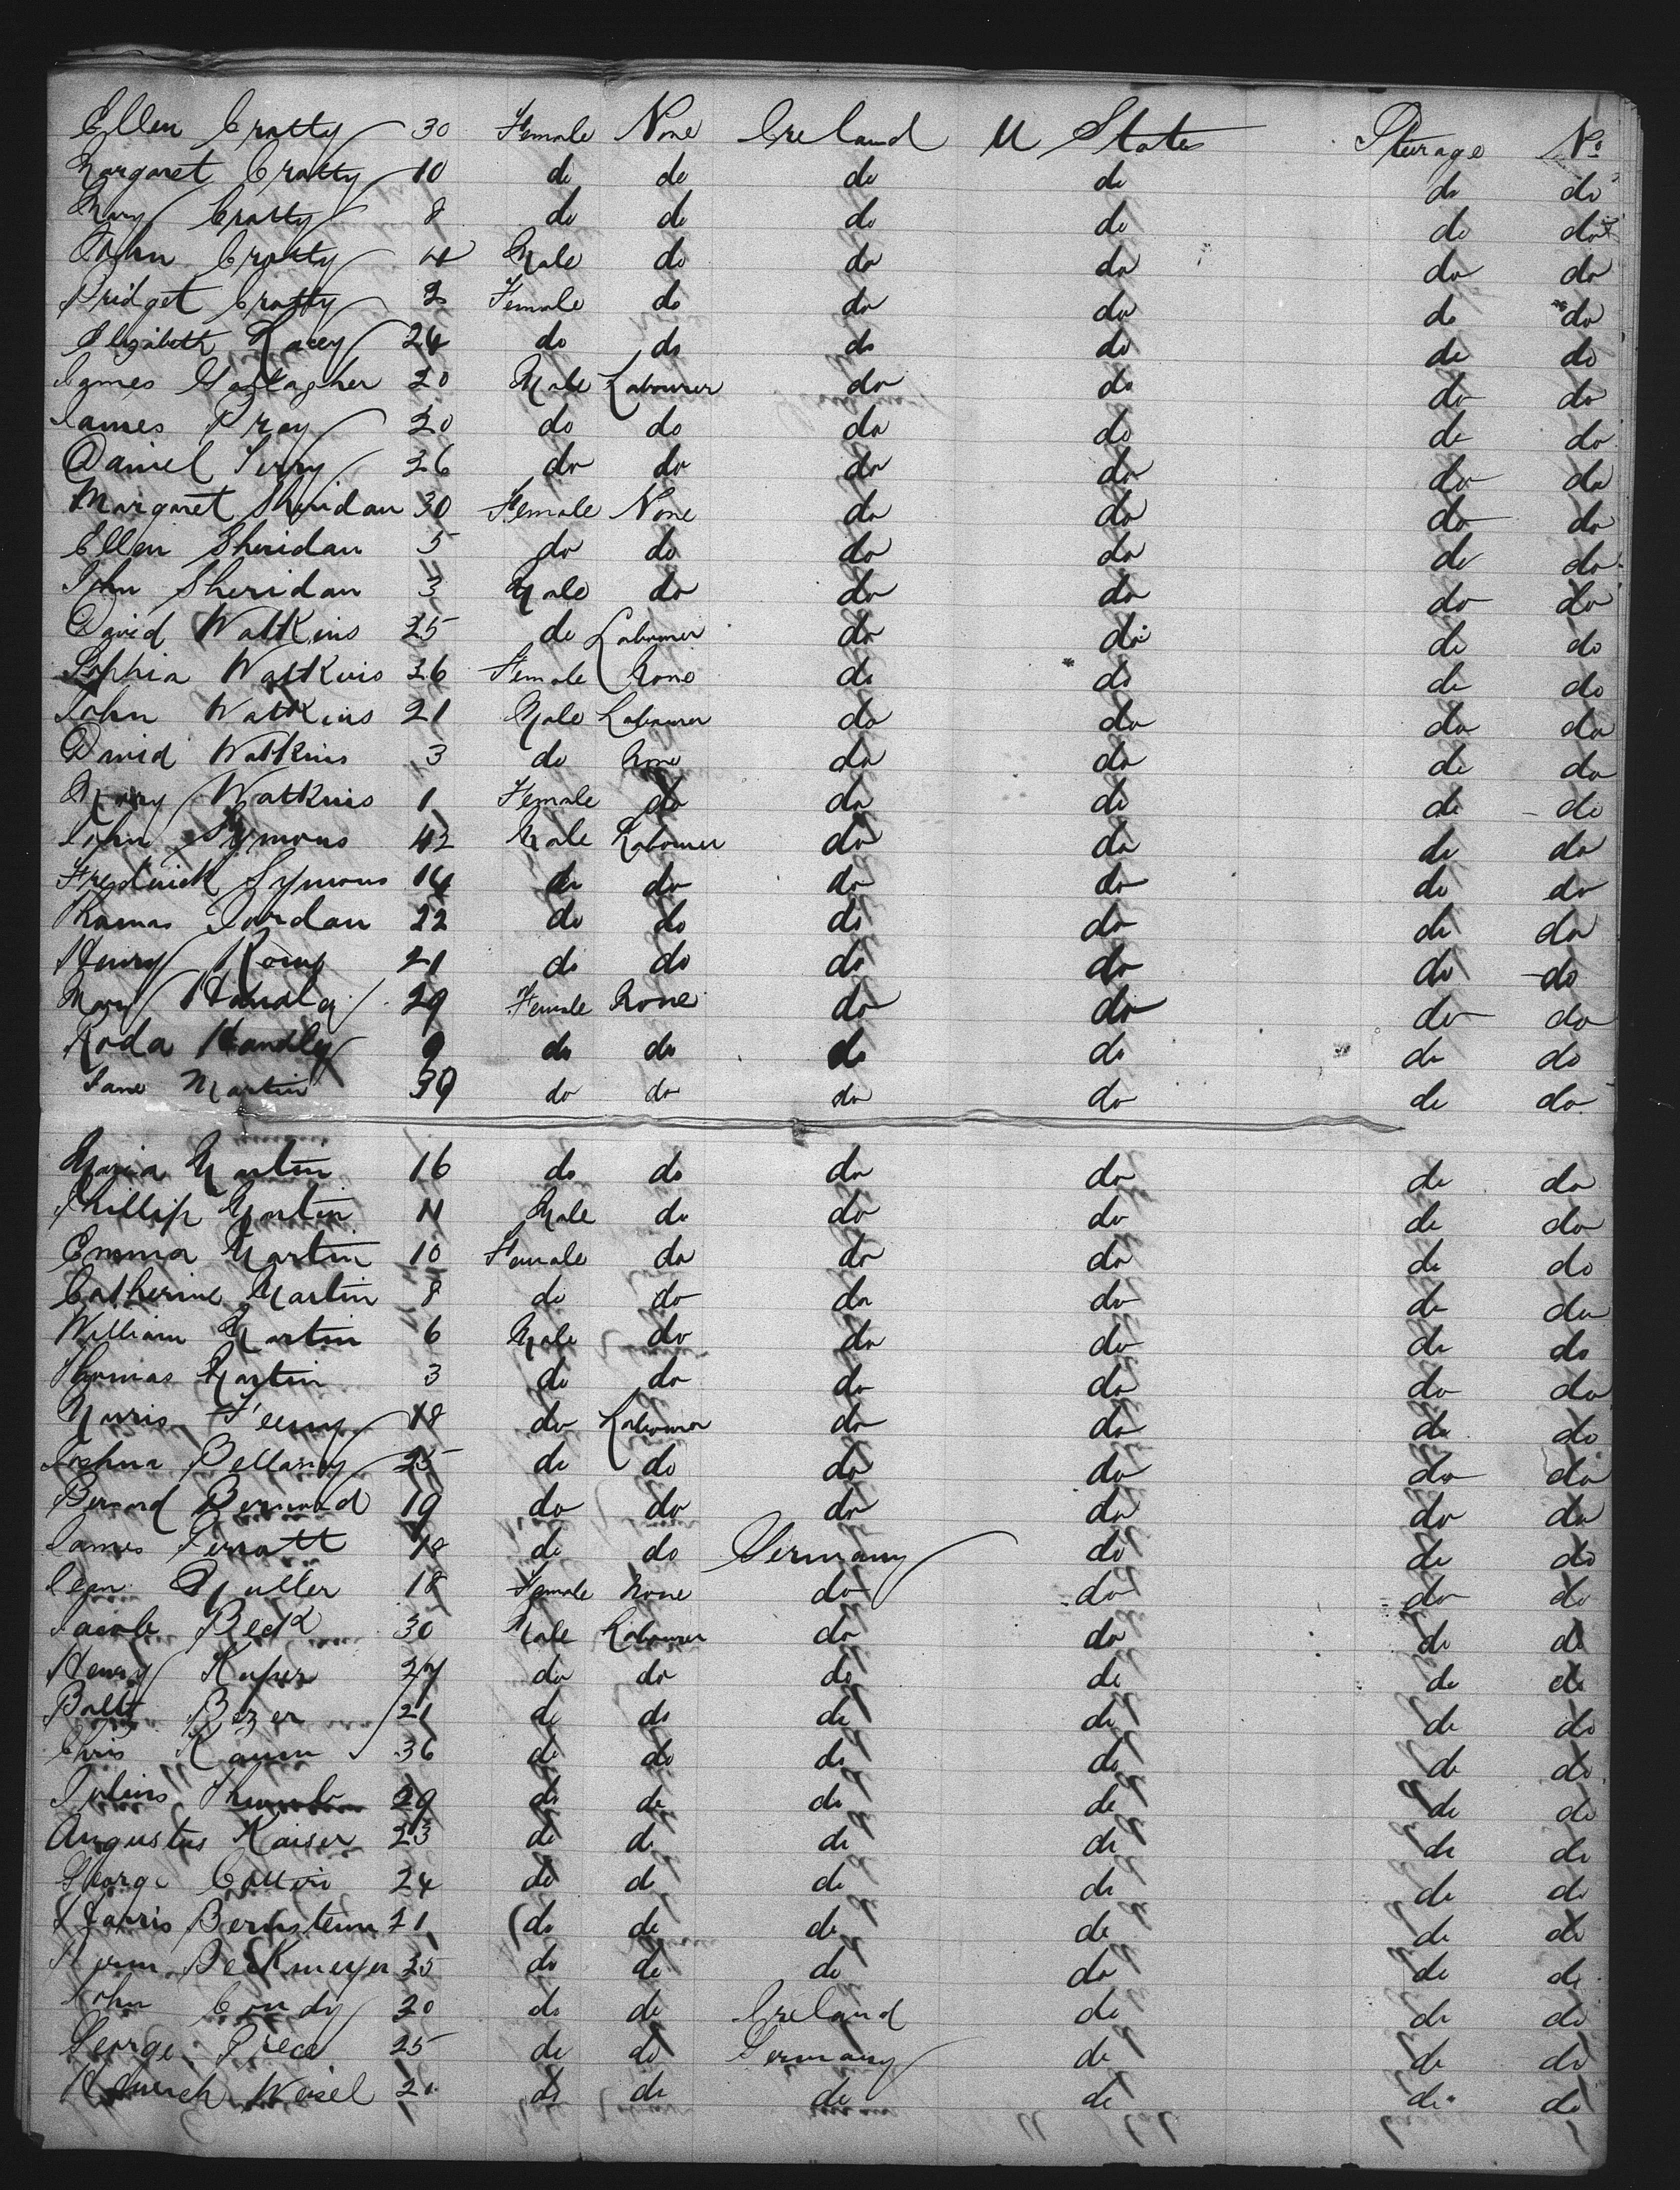 Ellen Cratty 30 Female None Ireland U States Sturage No
Margaret Cratty 10 do do do do do do
Mary Cratty 8 do do do do do do
John Cratty 4 Male do do do do do
Bridget Cratty 2 Female do do do do do
Elizabeth Kacey 24 do do do do do do
James Gallagher 20 Male Labourer do do do do
James Pray 20 do do do do do do
Daniel 26 do do do do do do
Margaret Sheridan 30 Female None do do do do
Ellen Sheridan 5 do do do do do do
John Sheridan 3 Male do do do do do
David Watkins 25 do Labourer do do do do
Sophia Watkins 26 Female None do do do do
John Watkins 21 Male Labourer do do do do
David Watkins 3 do None do do do do
Mary Watkins 1 Female do do do do do
John Symons 42 Male Labourer do do do do
Fredrick Symons 14 do do do do do do
Thomas Jordan 22 do do do do do do
Henry 21 do do do do do do
Mary Handly 29 Female None do do do do
Roda Handly 9 do do do do do do
Jane Martin 39 do do do do do do
Maria Martin 16 do do do do do do
Phillip Martin 11 Male do do do do do
Emma Martin 10 Female do do do do do
Catherine Martin 8 do do do do do do
William Martin 6 Male do do do do do
Thomas Martin 3 do do do do do do
18 do Labourer do do do do
Joshua Bellamy 25 do do do do do do
Bernard Bernard 19 do do do do do do
James Perratt 18 do do Germany do do do
Muller 18 Female None do do do do
Jacob Beck 30 Male Labourer do do do do
Henry Kuper 27 do do do do do do
Balt Bezer 21 do do do do do do
Chris Kamm 36 do do do do do do
Julius 29 do do do do do do
Augustus Kaiser 23 do do do do do do
George 24 do do do do do do
Harris Bernstein 21 do do do do do do
Herm Beckmeyer 25 do do do do do do
John Condy 20 do do Ireland do do do
George Piece 25 do do Germany do do do
Heinrich Weisel 21 do do do do do do